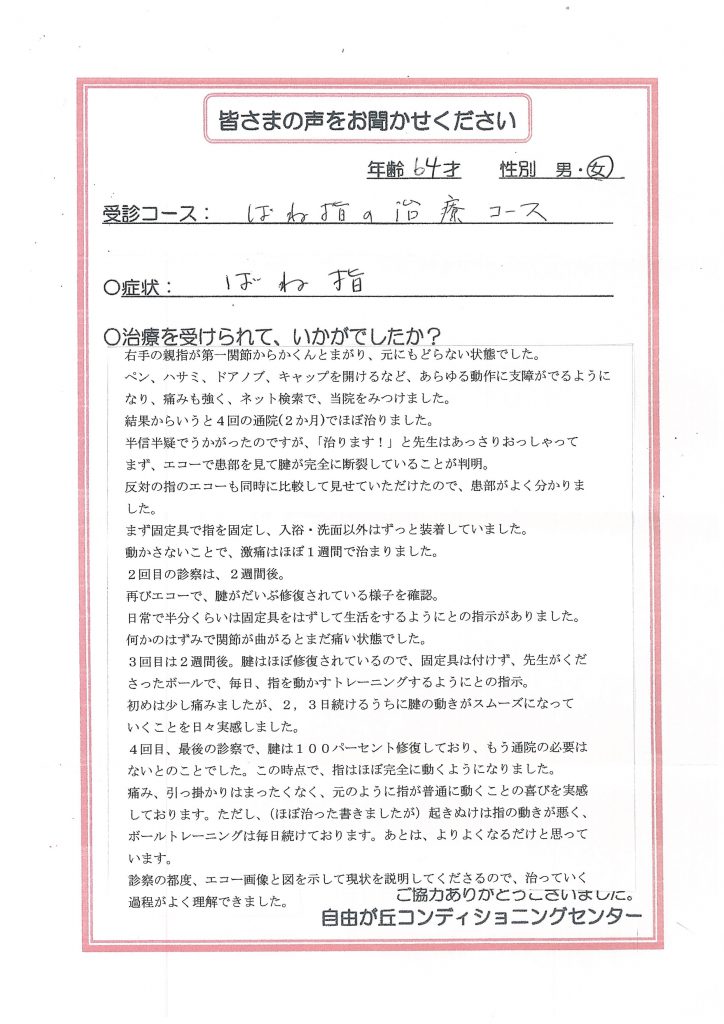 皆さまの声をお聞かせください
年齢 64才 性別 男・女
受診コース： ばね指の治療コース
〇症状： ばね指
〇治療を受けられて、いかがでしたか？
右手の親指が第一関節からかくんとまがり、元にもどらない状態でした。
ペン、ハサミ、ドアノブ、キャップを開けるなど、あらゆる動作に支障がでるように
なり、痛みも強く、ネット検索で、当院をみつけました。
結果からいうと４回の通院(２か月)でほぼ治りました。
半信半疑でうかがったのですが、「治ります！」と先生はあっさりおっしゃって
まず、エコーで患部を見て腱が完全に断裂していることが判明。
反対の指のエコーも同時に比較して見せていただけたので、患部がよく分かりま
した。
まず固定具で指を固定し、入浴・洗面以外はずっと装着していました。
動かさないことで、激痛はほぼ１週間で治まりました。
２回目の診察は、２週間後。
再びエコーで、腱がだいぶ修復されている様子を確認。
日常で半分くらいは固定具をはずして生活をするようにとの指示がありました。
何かのはずみで関節が曲がるとまだ痛い状態でした。
３回目は２週間後。腱はほぼ修復されているので、固定具は付けず、先生がくだ
さったボールで、毎日、指を動かすトレーニングするようにとの指示。
初めは少し痛みましたが、２，３日続けるうちに腱の動きがスムーズになって
いくことを日々実感しました。
４回目、最後の診察で、腱は１００パーセント修復しており、もう通院の必要は
ないとのことでした。この時点で、指はほぼ完全に動くようになりました。
痛み、引っ掛かりはまったくなく、元のように指が普通に動くことの喜びを実感
しております。ただし、（ほぼ治った書きましたが）起きぬけは指の動きが悪く、
ボールトレーニングは毎日続けております。あとは、よりよくなるだけと思って
います。
診察の都度、エコー画像と図を示して現状を説明してくださるので、治っていく
過程がよく理解できました。
ご協力ありがとうございました。
自由が丘コンディショニングセンター